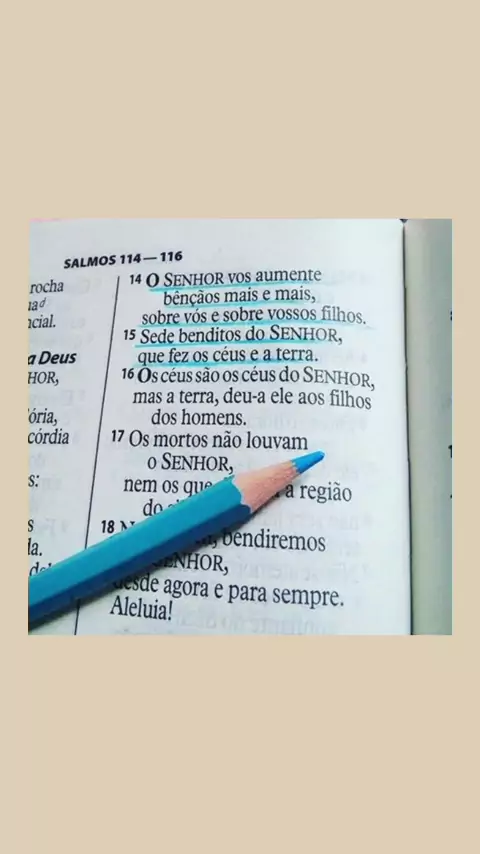 SALMOS 114—116
rocha
ia d
ncial.
a Deus
HOR,
ória,
córdia
s:
s
da.
14 O SENHOR vos aumente
bênçãos mais e mais,
sobre vós e sobre vossos filhos.
15 Sede benditos do SENHOR,
que fez os céus e a terra.
16 Os céus são os céus do SENHOR,
mas a terra, deu-a ele aos filhos
dos homens.
17 Os mortos não louvam
o SENHOR,
nem os que a região
do
18 bendiremos
SENHOR,
desde agora e para sempre.
Aleluia!